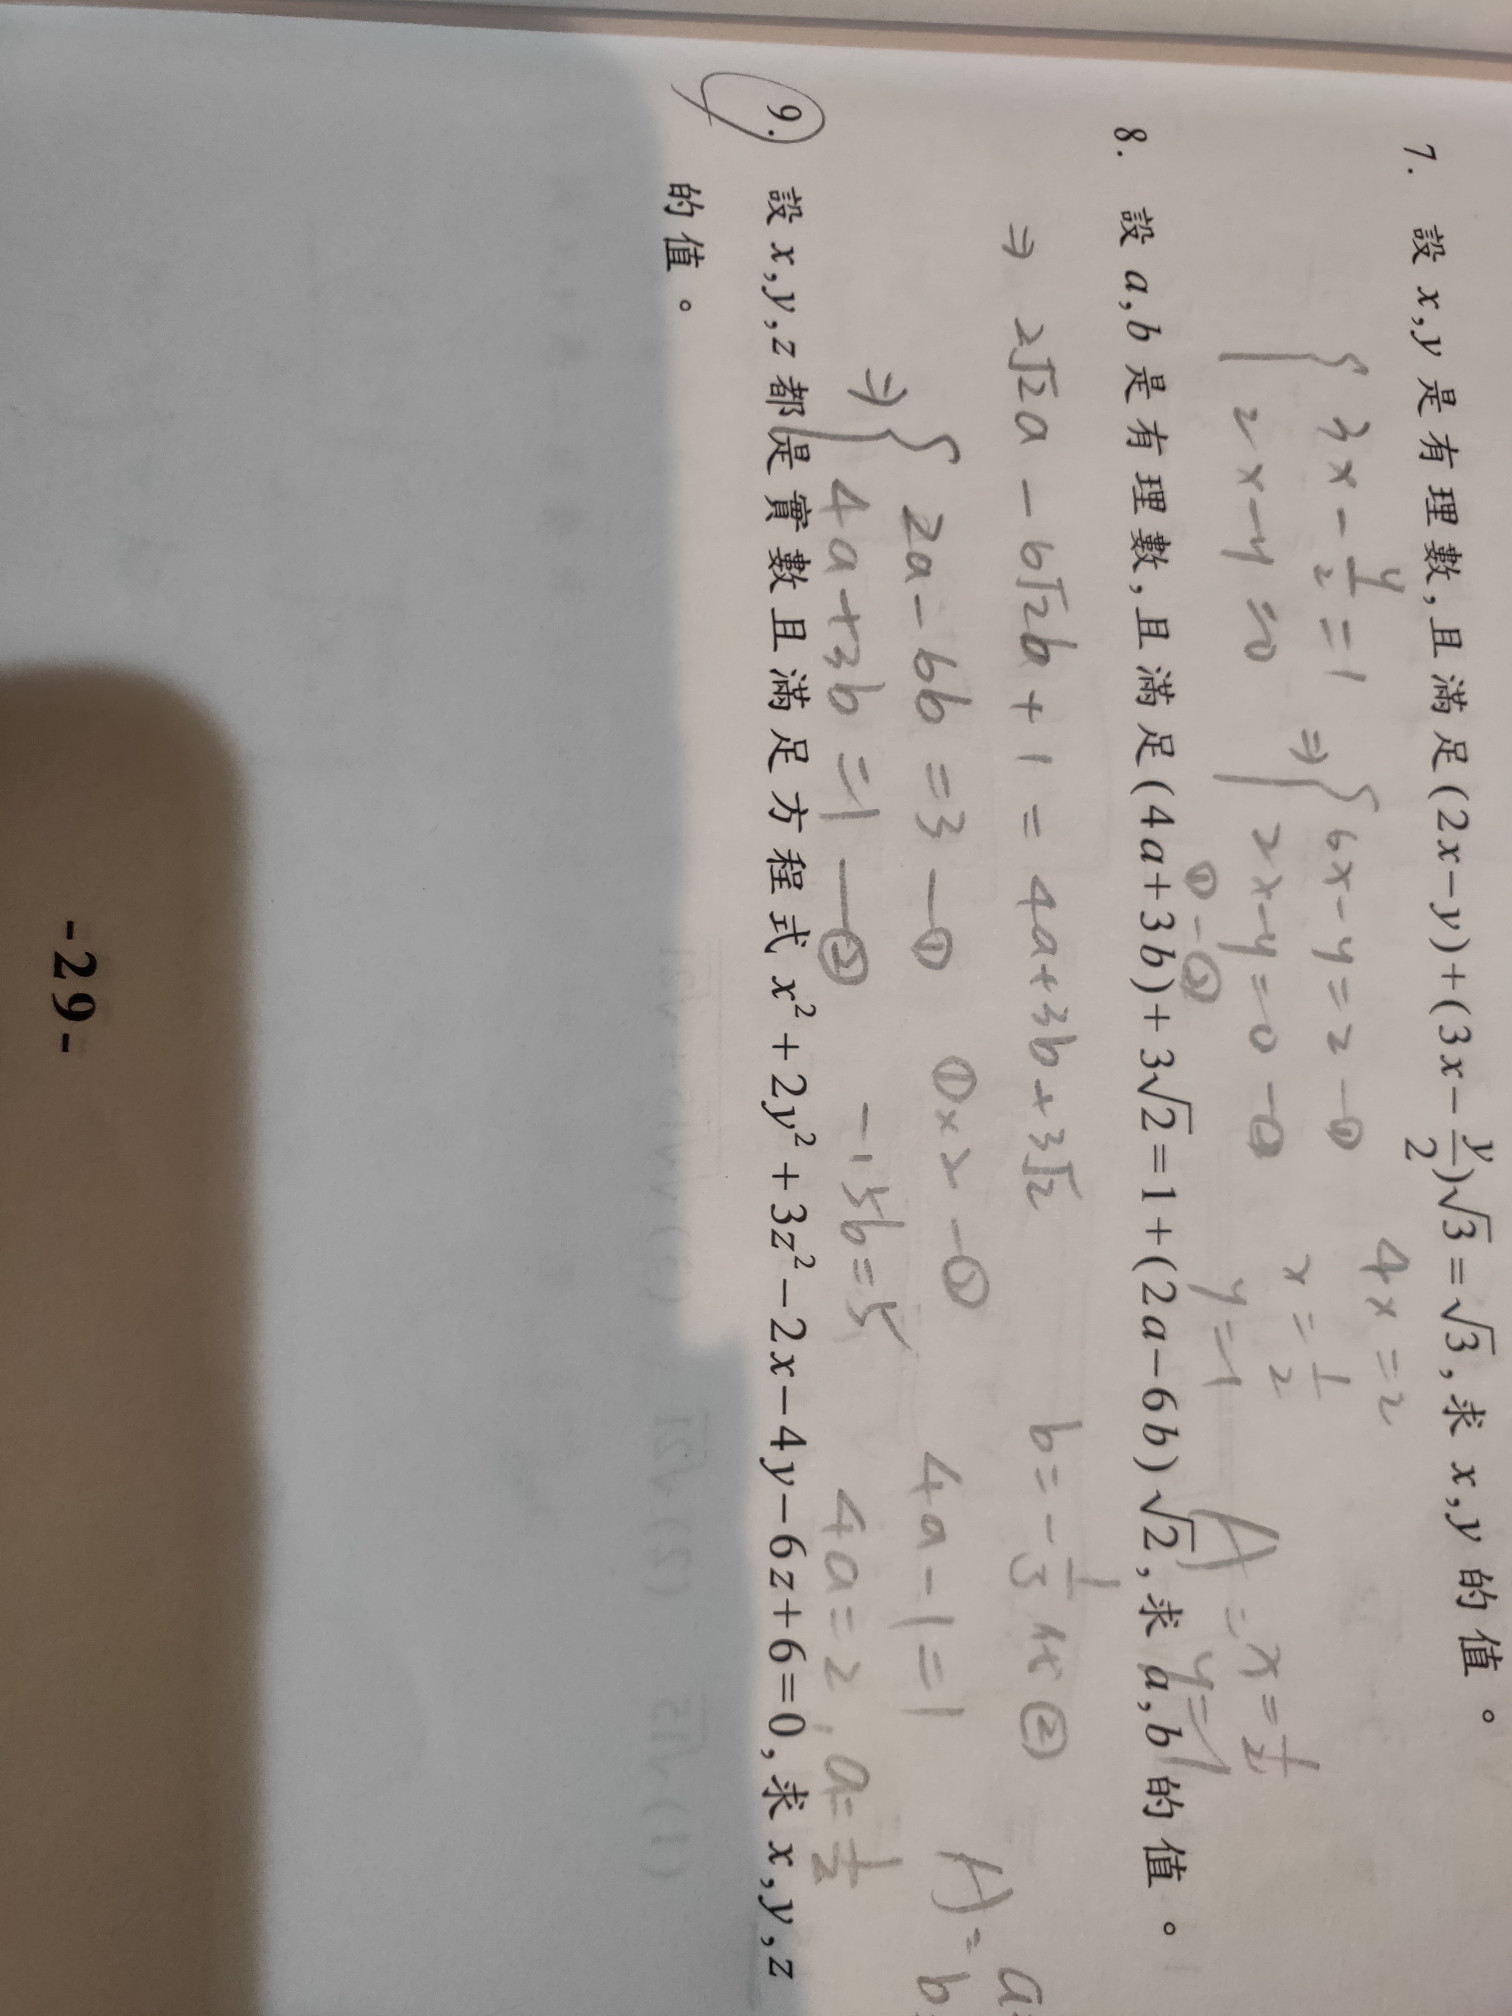 7. 設 x,y 是有理數,且滿足(2x-y)+(3x-\frac{y}{2})√3=√3,求 x,y 的值。
{ 3x-\frac{y}{2}=1 ⇒ { 6x-y=2 —① 4x=2
2x-y=0 2x-y=0 —② x=\frac{1}{2}
①-② y=1 A= x=\frac{1}{2} y=1
8. 設 a,b 是有理數,且滿足(4a+3b)+3√2=1+(2a-6b)√2,求 a,b 的值。
⇒ 2√2a-6√2b+1=4a+3b+3√2 b=-\frac{1}{3} 代② a=
⇒ { 2a-6b=3 —① ①×2-② 4a-1=1 A= b
4a+3b=1 —② -15b=5 4a=2, a=\frac{1}{2}
9. 設 x,y,z 都是實數且滿足方程式 x²+2y²+3z²-2x-4y-6z+6=0,求 x,y,z
的值。
-29-